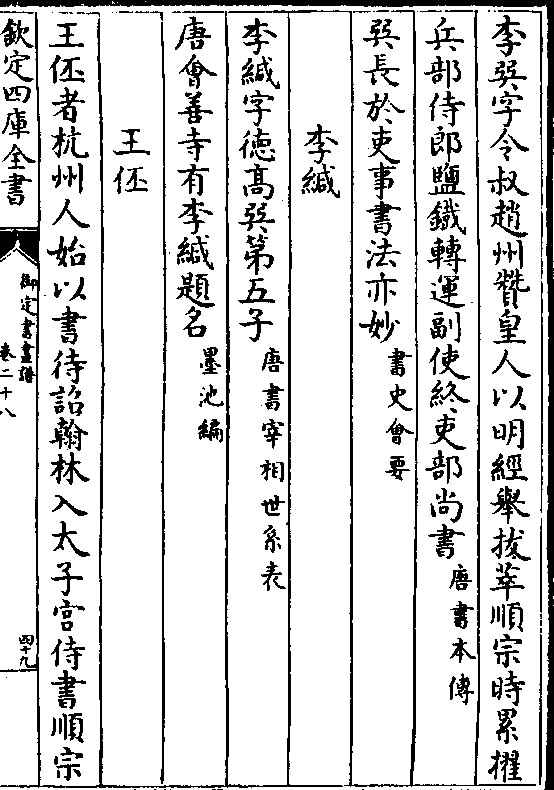 李巽字令叔趙州贊皇人以明經舉拔萃順宗時累擢
兵部侍郎鹽鐵轉運副使終吏部尚書唐書本傳
巽長於吏事書法亦妙書史會要
李緘
李緘字德髙巽第五子唐書宰相世系表
唐會善寺有李緘題名墨池編
王伾
王伾者杭州人始以書待詔翰林入太子宮侍書順宗
欽定四庫全書
御定書畫譜
卷二十八
四十九